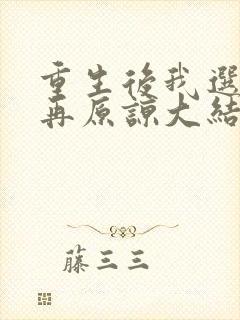 重生後我選
再原諒大結
藤三三